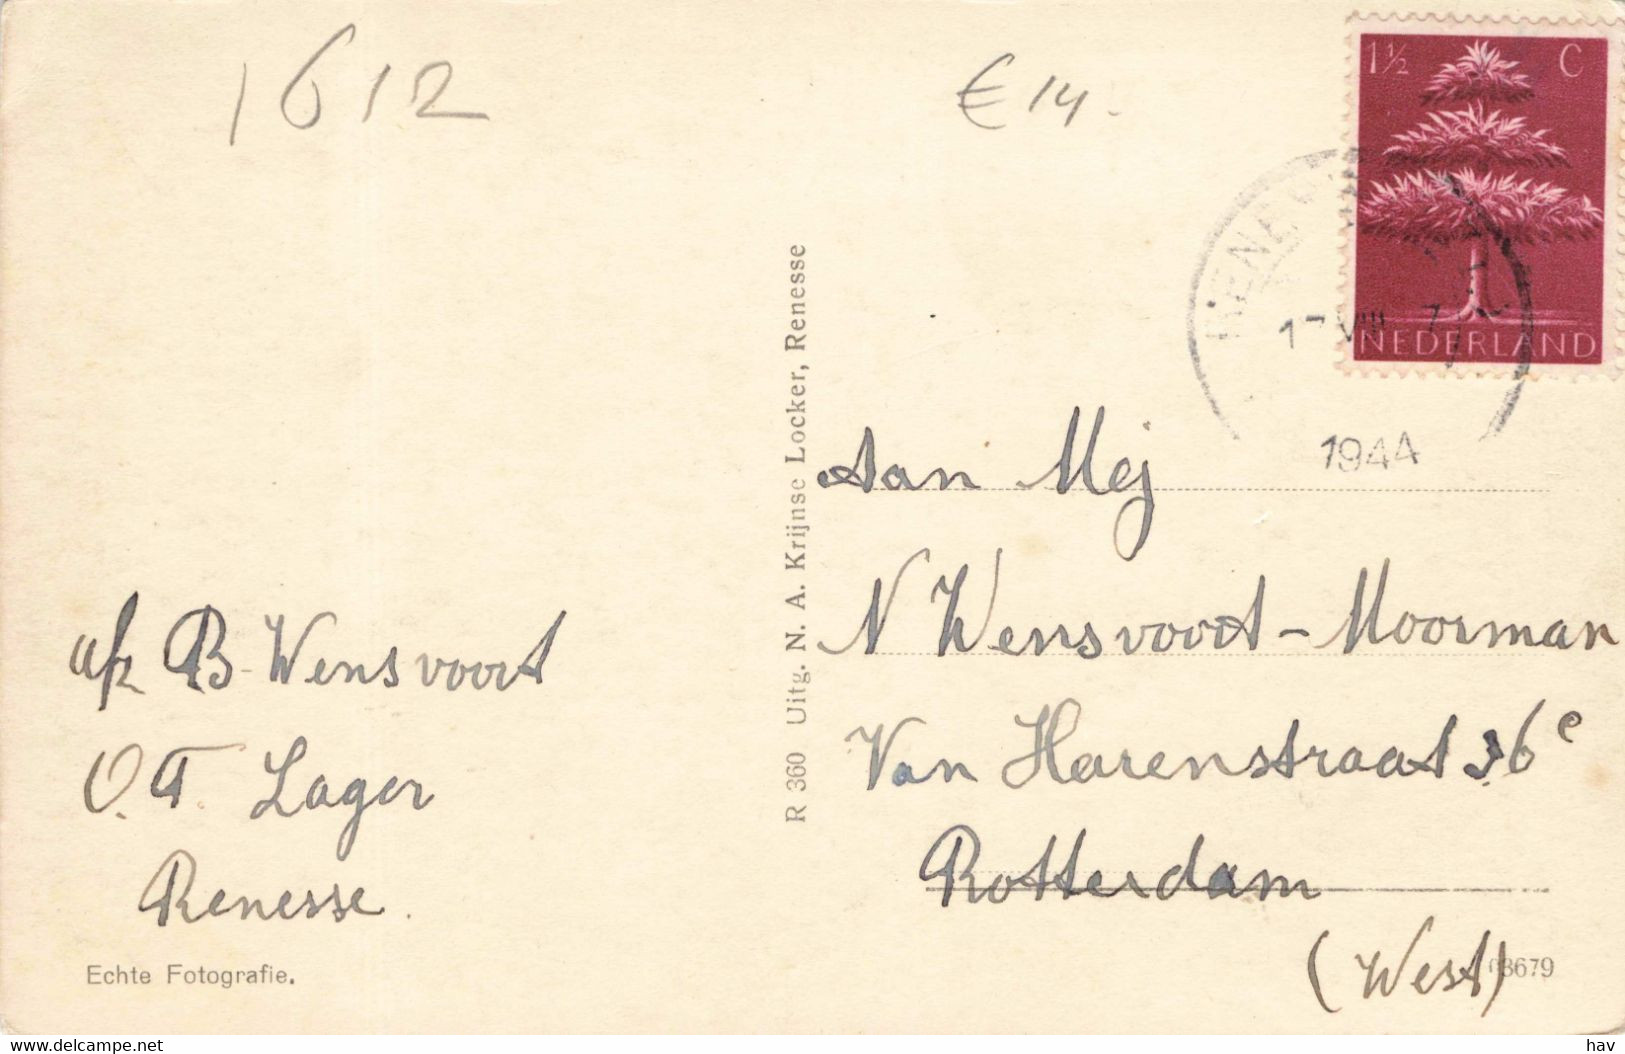 1612
€ 14.
1½ C
NEDERLAND
17 VIII 7
1944
R 360 Uitg. N. A. Krijnse Locker, Renesse
Aan Mej
N Wensvoort-Moorman
Van Harenstraat 36e
Rotterdam
(West)
B Wensvoort
O.T. Lager
Renesse.
Echte Fotografie.
03679
delcampe.net
hav